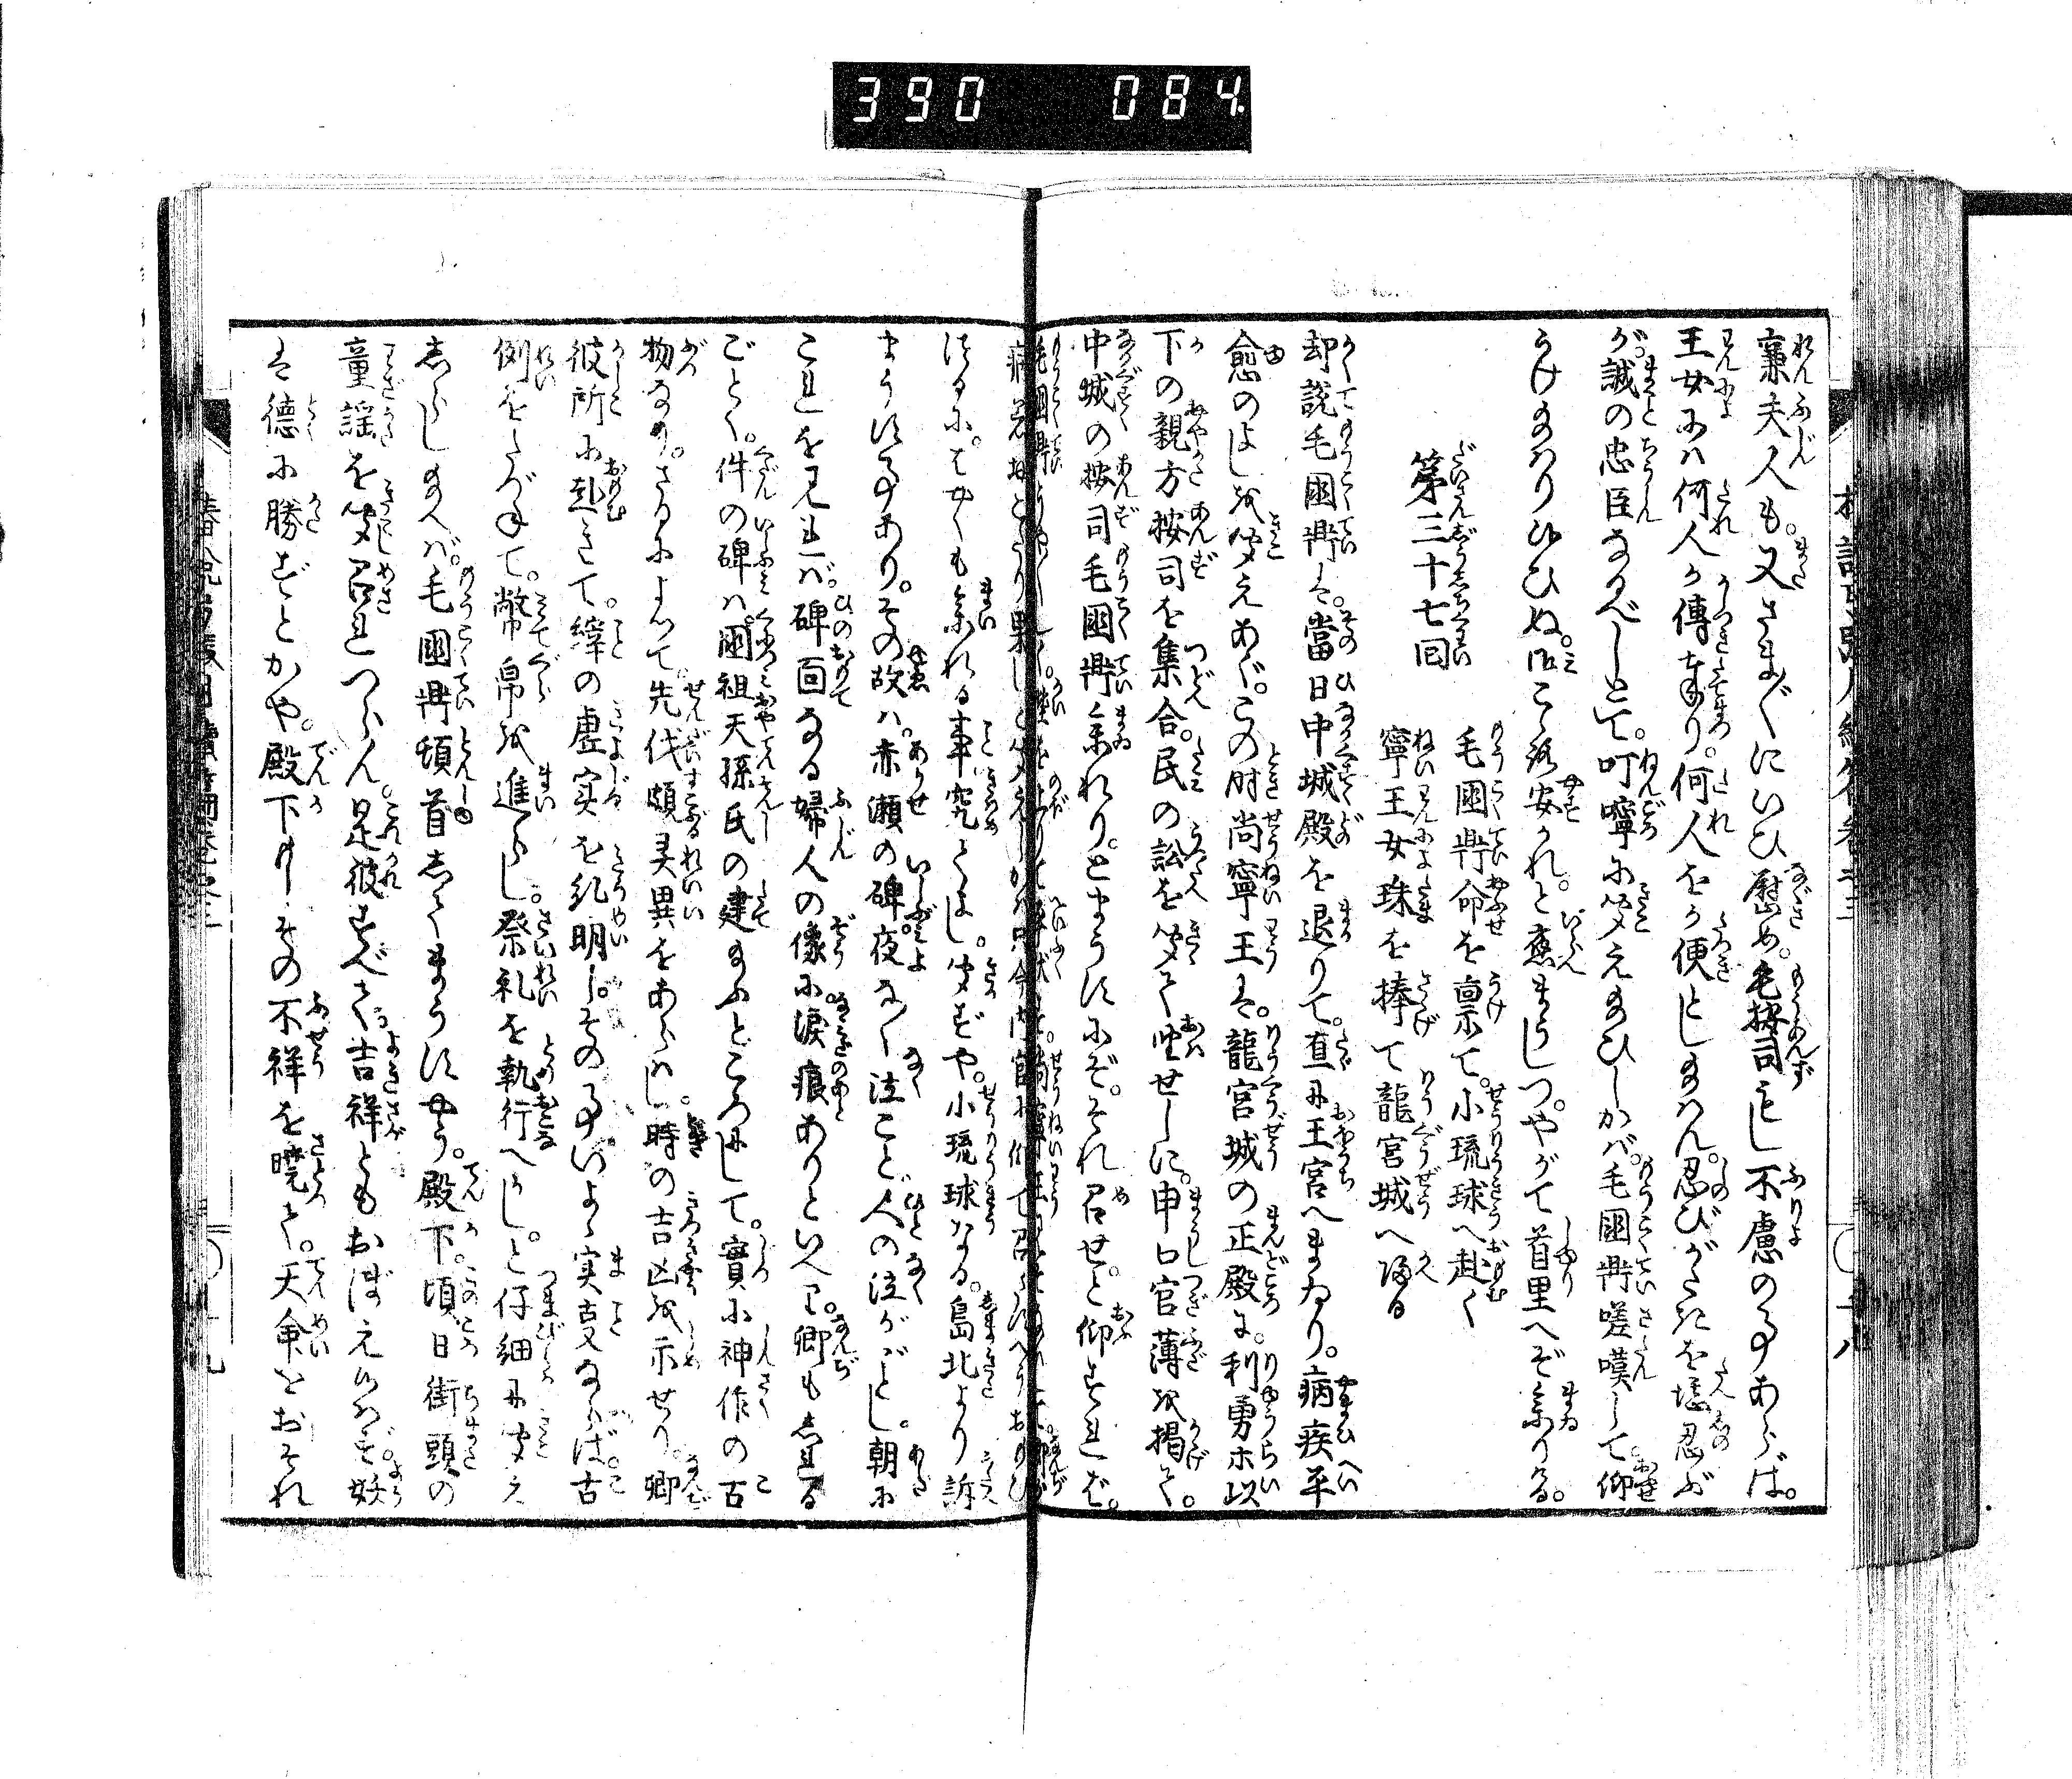 390 084
廉夫人も。又さま〴〵にいひ慰め。毛按司もし不慮の事あらば。
王女には何人か傅奉り。何人をか便とし給はん。忍びがたきを堪忍ぶ
が誠の忠臣なるべしとて。叮嚀に聞え給ひしかば。毛國鼎嗟嘆して仰
うけ給はり候ひぬ。御こゝろ安かれ。と應まうしつ。やがて首里へぞ参りける。
第三十七回
毛國鼎命を禀て。小琉球へ赴く
寧王女珠を捧て龍宮城へ帰る
却說毛國鼎は。當日中城殿を退りて。直に王宮へまゐり。病疾平
愈のよしを聞えあぐ。この時尚寧王は。龍宮城の正殿に。利勇ホ以
下の親方按司を集合。民の訟を聞て坐せしに。申口官薄を掲て。
中城の按司毛國鼎参れり。とまうすにぞ。それ召せ。と仰すれば。
まうす事あり。その故は。赤瀬の碑夜なく泣こと。人の泣がごとし。朝に
これを見れば。碑面なる婦人の像に淚痕ありといへり。卿も志れる
ごとく。件の碑は。國祖天孫氏の建給ふところにして。實に神作の古
物なり。さるによつて。先代頗灵異をあらはし。時の吉凶を示せり。卿
彼所に赴きて。縡の虚実を糺明し。その事いよゝ実叓ならば。古
例をたづねて。幣帛を進らし。祭礼を執行へかし。と仔細に聞え
志らし給へば。毛國鼎頓首志てまうすやう。殿下。頃日街頭の
童謡を聞召れつらん。是彼すべて吉祥ともおぼえ候はず。妖
は德に勝ずとかや。殿下もしその不祥を曉て。天命をおそれ